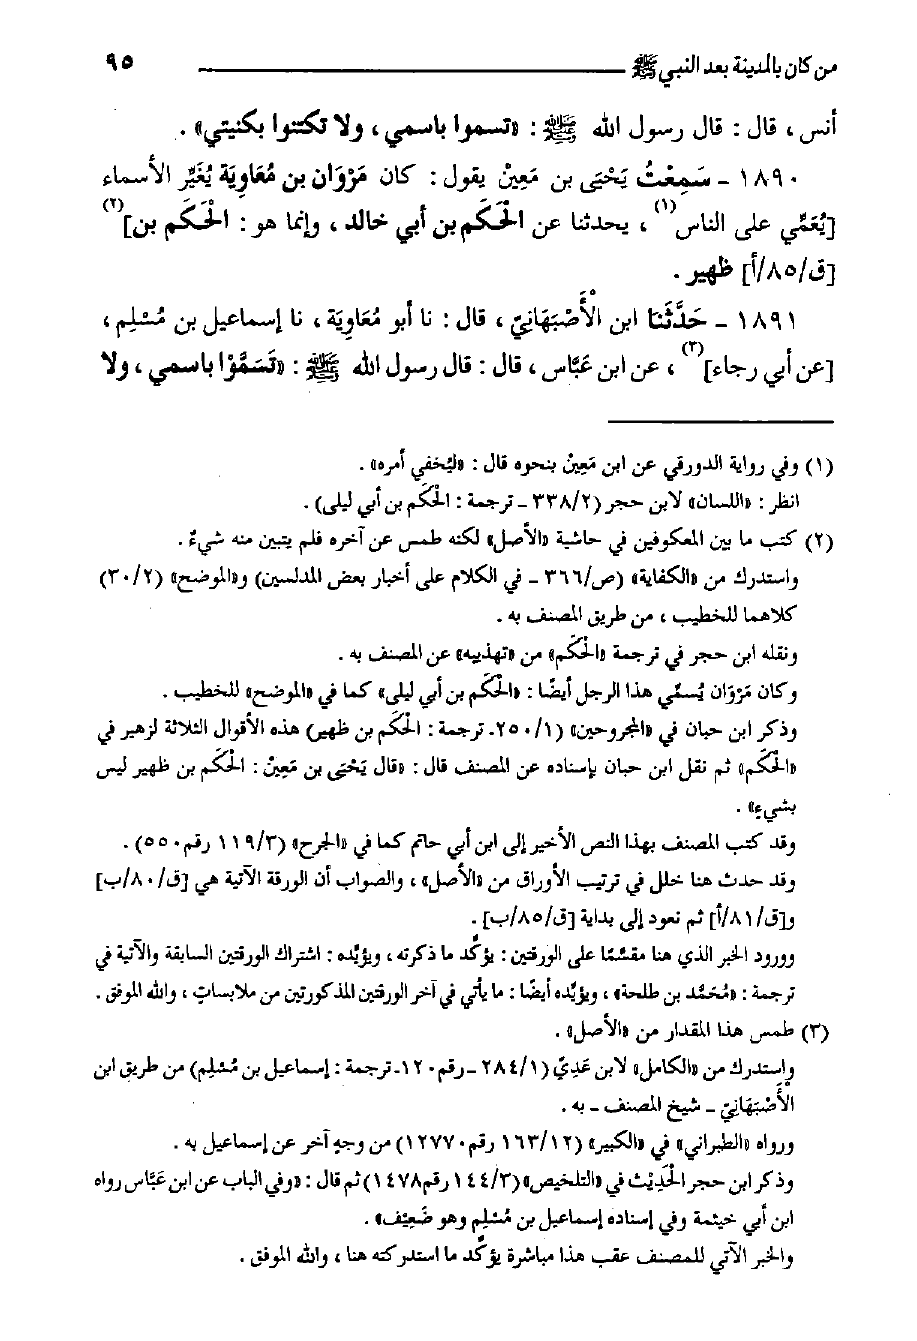 من كان بالمدينة بعد النبي ﷺ ٩٥
أنس ، قال : قال رسول الله ﷺ : «تسموا باسمي ، ولا تكتنوا بكنيتي» .
١٨٩٠ - سَمِعْتُ يَحْيَى بن مَعِينْ يقول : كان مَرْوَان بن مُعَاوِيَة يُغَيِّر الأسماء
[يُعَمِّي على الناس(١) ، يحدثنا عن الحَكَم بن أبي خالد ، وإنما هو : الحَكَم بن](٢)
[ق/٨٥/أ] ظهير .
١٨٩١ - حَدَّثَنَا ابن الأَصْبَهَانِيّ ، قال : نا أبو مُعَاوِيَة ، نا إسماعيل بن مُسْلِم ،
[عن أبي رجاء](٣) ، عن ابن عَبَّاس ، قال : قال رسول الله ﷺ : «تَسَمَّوْا باسمي ، ولا
(١) وفي رواية الدورقي عن ابن مَعِينْ بنحوه قال : «ليُخفي أمره» .
انظر : «اللسان» لابن حجر (٣٣٨/٢ - ترجمة : الحَكَم بن أبي ليلى) .
(٢) كتب ما بين المعكوفين في حاشية «الأصل» لكنه طمس عن آخره فلم يتبين منه شيءٌ .
واستدرك من «الكفاية» (ص/٣٦٦ - في الكلام على أخبار بعض المدلسين) و«الموضح» (٣٠/٢)
كلاهما للخطيب ، من طريق المصنف به .
ونقله ابن حجر في ترجمة «الحَكَم» من «تهذيبه» عن المصنف به .
وكان مَرْوَان يُسمِّي هذا الرجل أيضًا : «الحَكَم بن أبي ليلى» كما في «الموضح» للخطيب .
وذكر ابن حبان في «المجروحين» (٢٥٠/١- ترجمة : الحَكَم بن ظهير) هذه الأقوال الثلاثة لزهير في
«الحَكَم» ثم نقل ابن حبان بإسناده عن المصنف قال : «قال يَحْيَى بن مَعِينْ : الحَكَم بن ظهير ليس
بشيء» .
وقد كتب المصنف بهذا النص الأخير إلى ابن أبي حاتم كما في «الجرح» (١١٩/٣ رقم٥٥٠) .
وقد حدث هنا خلل في ترتيب الأوراق من «الأصل» ، والصواب أن الورقة الآتية هي [ق/٨٠/ب]
و[ق/٨١/أ] ثم نعود إلى بداية [ق/٨٥/ب] .
وورود الخبر الذي هنا مقسَّمًا على الورقتين : يؤكِّد ما ذكرته ، ويؤيِّده : اشتراك الورقتين السابقة والآتية في
ترجمة : «مُحَمَّد بن طلحة» ، ويؤيِّده أيضًا : ما يأتي في آخر الورقتين المذكورتين من ملابساتٍ ، والله الموفق .
(٣) طمس هذا المقدار من «الأصل» .
واستدرك من «الكامل» لابن عَدِيّ (٢٨٤/١ -رقم١٢٠- ترجمة : إسماعيل بن مُسْلِم) من طريق ابن
الأَصْبَهَانِيّ - شيخ المصنف - به .
ورواه «الطبراني» في «الكبير» (١٦٣/١٢ رقم١٢٧٧٠) من وجهٍ آخر عن إسماعيل به .
وذكر ابن حجر الحَدِيْث في «التلخيص» (١٤٤/٣ رقم١٤٧٨) ثم قال : «وفي الباب عن ابن عَبَّاس رواه
ابن أبي خيثمة وفي إسناده إسماعيل بن مُسْلِم وهو ضَعِيْف» .
والخبر الآتي للمصنف عقب هذا مباشرة يؤكِّد ما استدركته هنا ، والله الموفق .